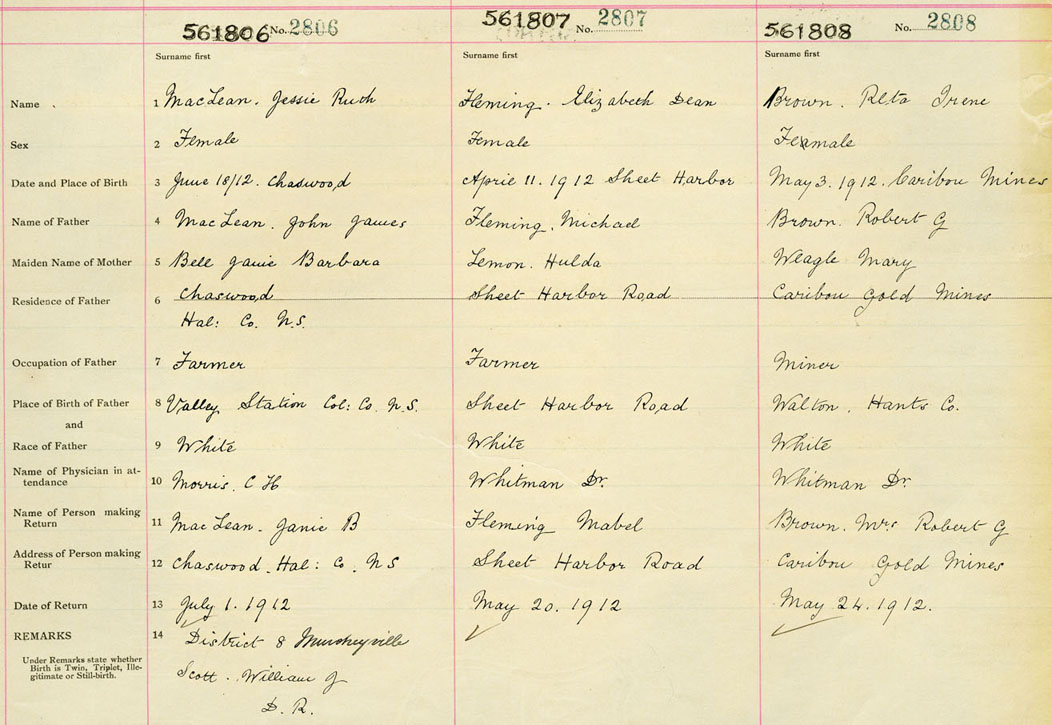 561806 No. 2806
561807 No. 2807
561808 No. 2808
Surname first
Surname first
Surname first
Name 1 MacLean. Jessie Ruth
Fleming. Elizabeth Dean
Brown. Reta Irene
Sex 2 Female
Female
Female
Date and Place of Birth 3 June 18/12. Chaswood
April 11. 1912 Sheet Harbor
May 3. 1912. Caribou Mines
Name of Father 4 MacLean. John James
Fleming. Michael
Brown. Robert G
Maiden Name of Mother 5 Bell Janie Barbara
Lemon. Hulda
Weagle Mary
Residence of Father 6 Chaswood
Hal: Co. N.S.
Sheet Harbor Road
Caribou Gold Mines
Occupation of Father 7 Farmer
Farmer
Miner
Place of Birth of Father 8 Valley Station Col: Co. N.S.
Sheet Harbor Road
Walton, Hants Co.
and
Race of Father 9 White
White
White
Name of Physician in at-
tendance 10 Morris. C H
Whitman Dr.
Whitman Dr.
Name of Person making
Return 11 MacLean. Janie B
Fleming Mabel
Brown. Mrs Robert G
Address of Person making
Retur 12 Chaswood. Hal: Co, N S
Sheet Harbor Road
Caribou Gold Mines
Date of Return 13 July 1. 1912
May 20. 1912
May 24. 1912.
REMARKS 14 District 8
Under Remarks state whether
Birth is Twin, Triplet, Ille-
gitimate or Still-birth.
Scott. William J
D. R.